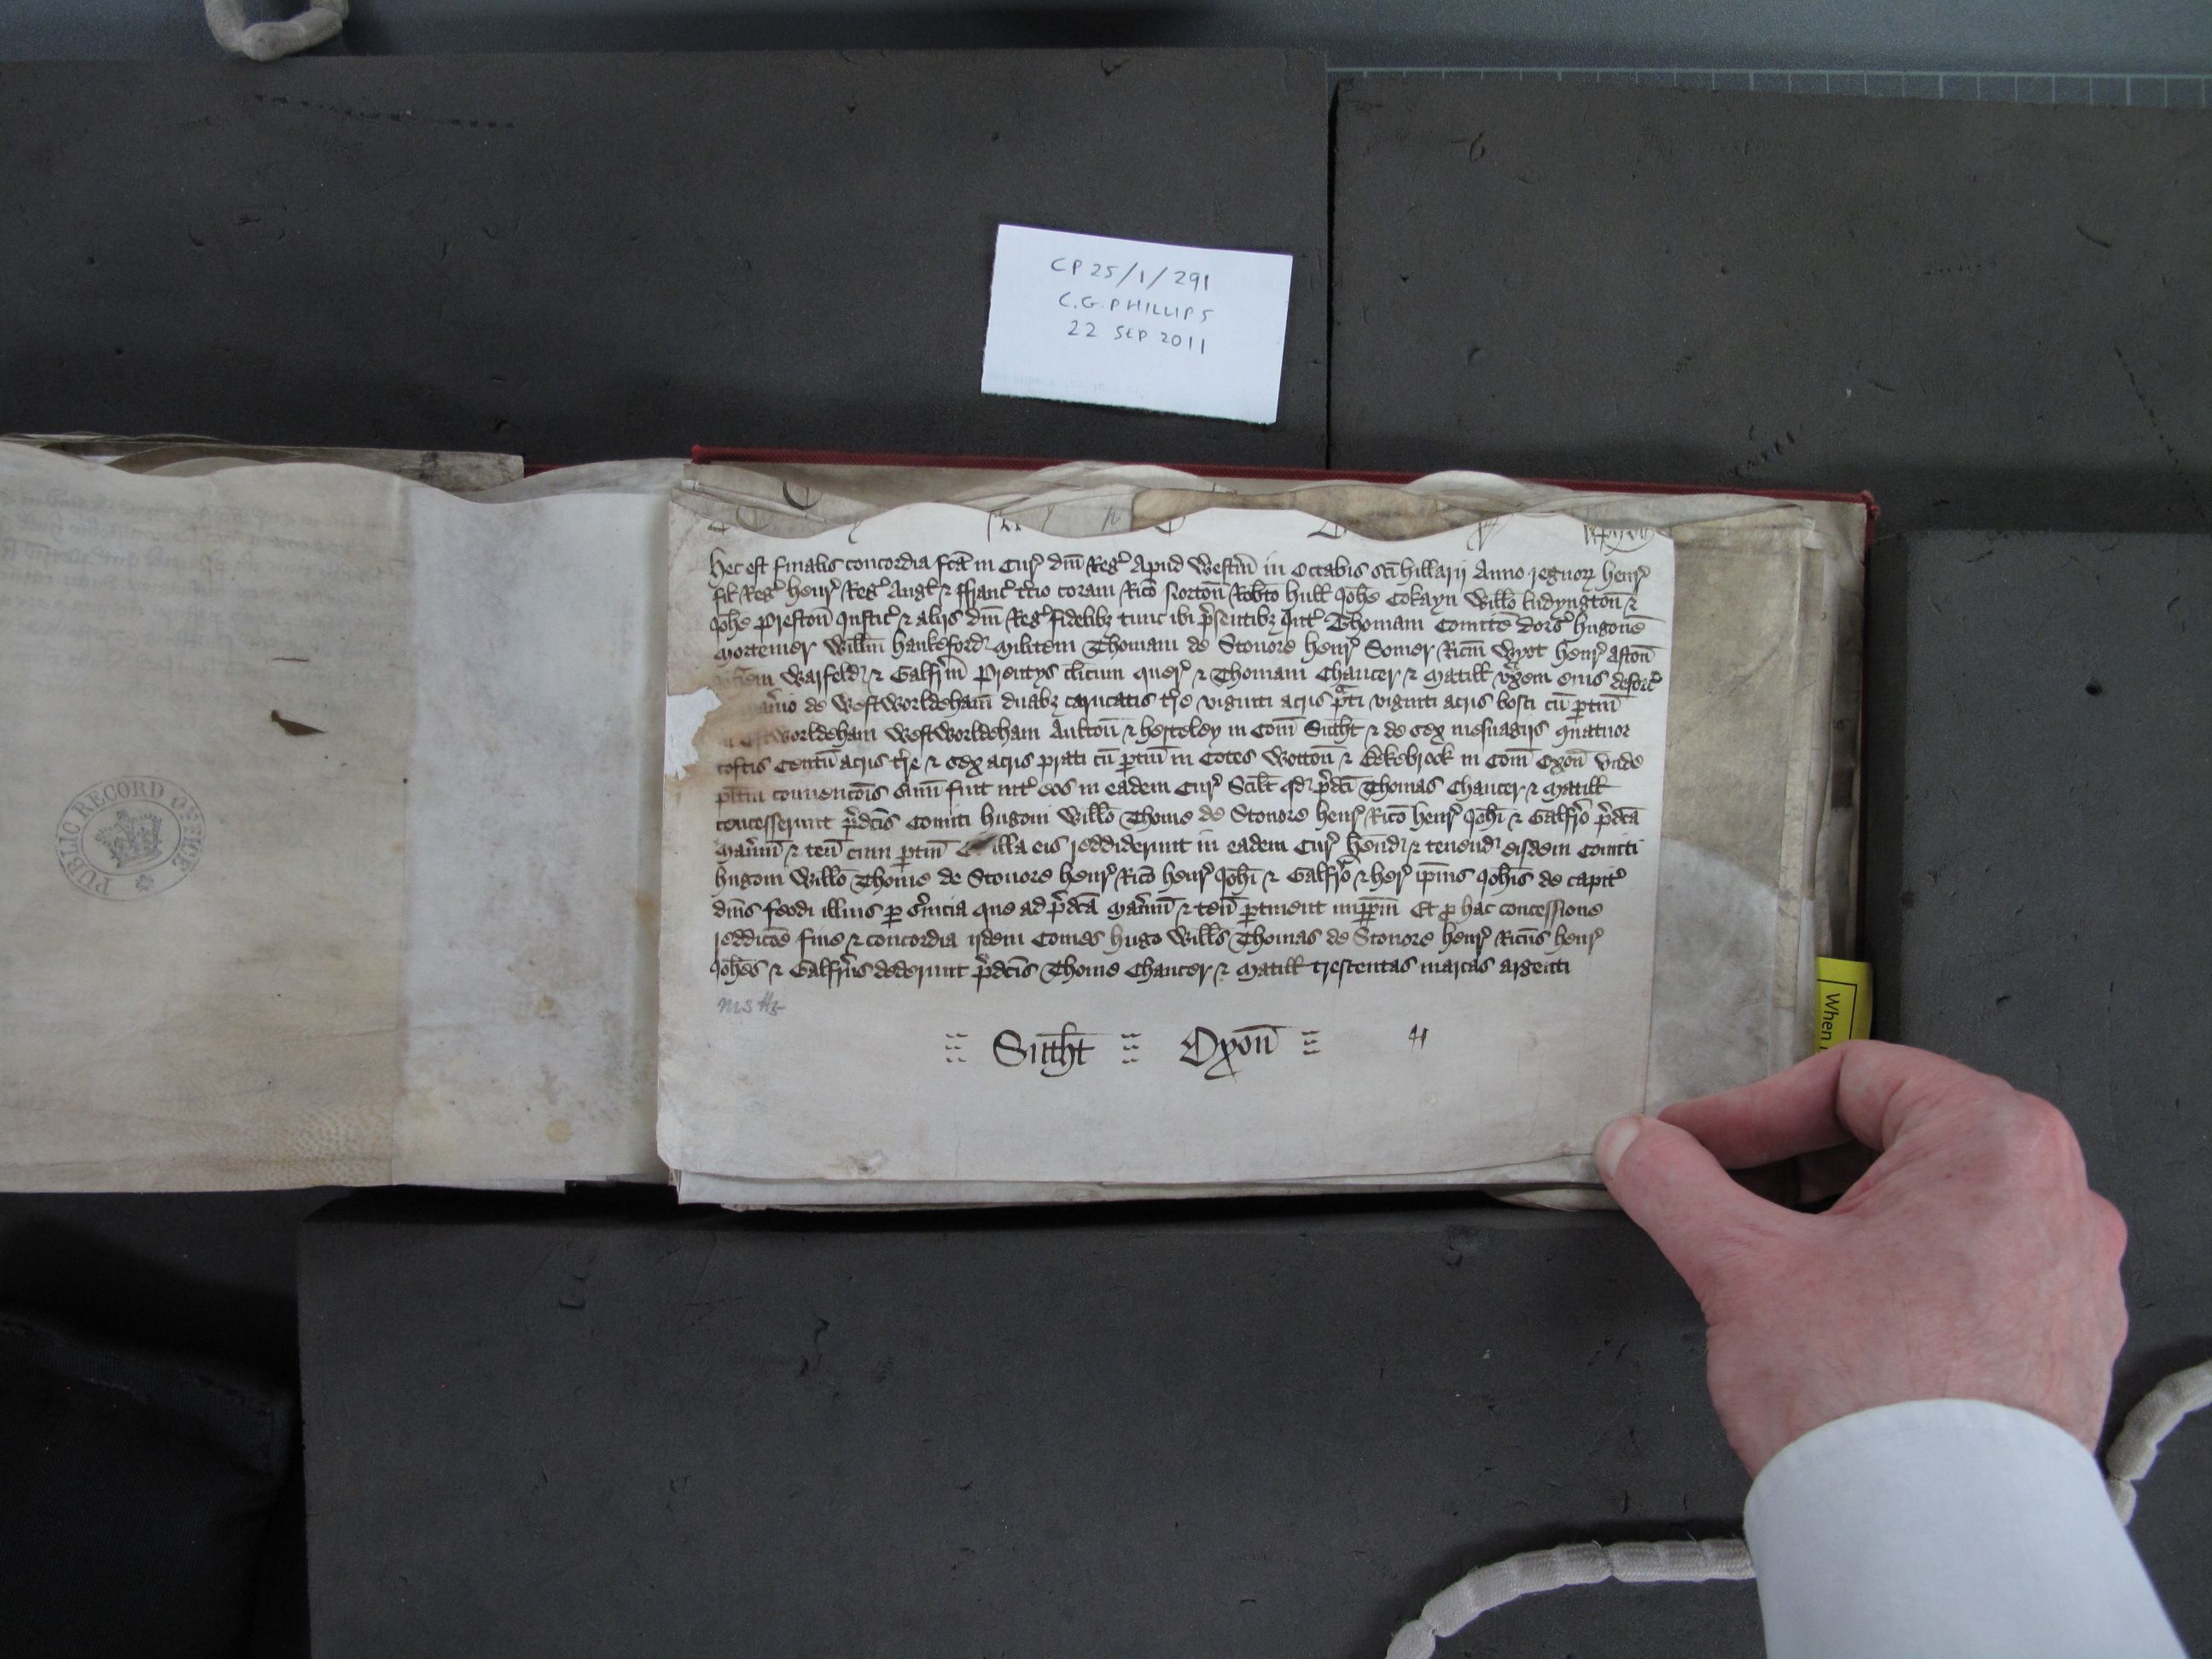 CP 25/1/291
C.G. PHILLIPS
22 SEP 2011
PUBLIC RECORD OFFICE
Hec est finalis concordia fcā in Cur' dnī Reg' Apud Westm̄ in Octabis scī hillarij Anno regnor' henr'
fil Reg' henr' Reg' Angl' & ffranc' t'cio coram Ricō Norton̄ Rob̄to hull Joh̄e Cokayn Willō ludyngton̄ &
Joh̄e Preston̄ Justic' & alijs dnī Reg' fidelibȝ tunc ibi p'sentibȝ Int' Thomam Comitē dors' hugonē
mortemer Will̄m hankeford' militem Thomam de Stonore henr' Somer Ricm̄ Wyot henr' Aston̄
Warfeld' & Galfr'm Prentys cl̄icum quer' & Thomam Chaucer & Matill' vx'em eius deforc'
de Westworldeham̄ duabȝ carucatis t're viginti acris p'ti viginti acris bosci cū p̄tin̄
worldeham Westworldeham Aulton̄ & herteley in Com̄ Suth̄t & de sex mesuagijs quatuor
toftis Centū acris t're & sex acris prati cū p̄tin̄ in Cotes Wotton̄ & Ekebrook in Com̄ Oxon̄ vnde
pl̄itm conuencōis sum̄ fuit int' eos in eadem Cur' Scil̄t qd' p'dcī Thomas Chaucer & Matill'
concesserunt p'dcīs Comiti hugoni Willō Thome de Stonore henr' Ricō henr' Joh̄i & Galfr'o p'dcā
man'ium & ten̄ cum p̄tin̄ Et illa eis reddiderunt in eadem Cur' hend' & tenend' eisdem Comiti
hugoni Willō Thome de Stonore henr' Ricō henr' Joh̄i & Galfr'o & her' ip̄ius Joh̄is de capit'
dn̄is feodi illius p̄ s'uicia que ad p'dcā man'ium & ten̄ p̄tinent imp̄p̄m Et p̱ hac concessione
reddicōe fine & concordia ijdem Comes hugo Will̄s Thomas de Stonore henr' Ricūs henr'
Joh̄es & Galfr'us dederunt p'dcīs Thome Chaucer & Matill' trescentas marcas argenti
Suth̄t Oxon̄ 41
When